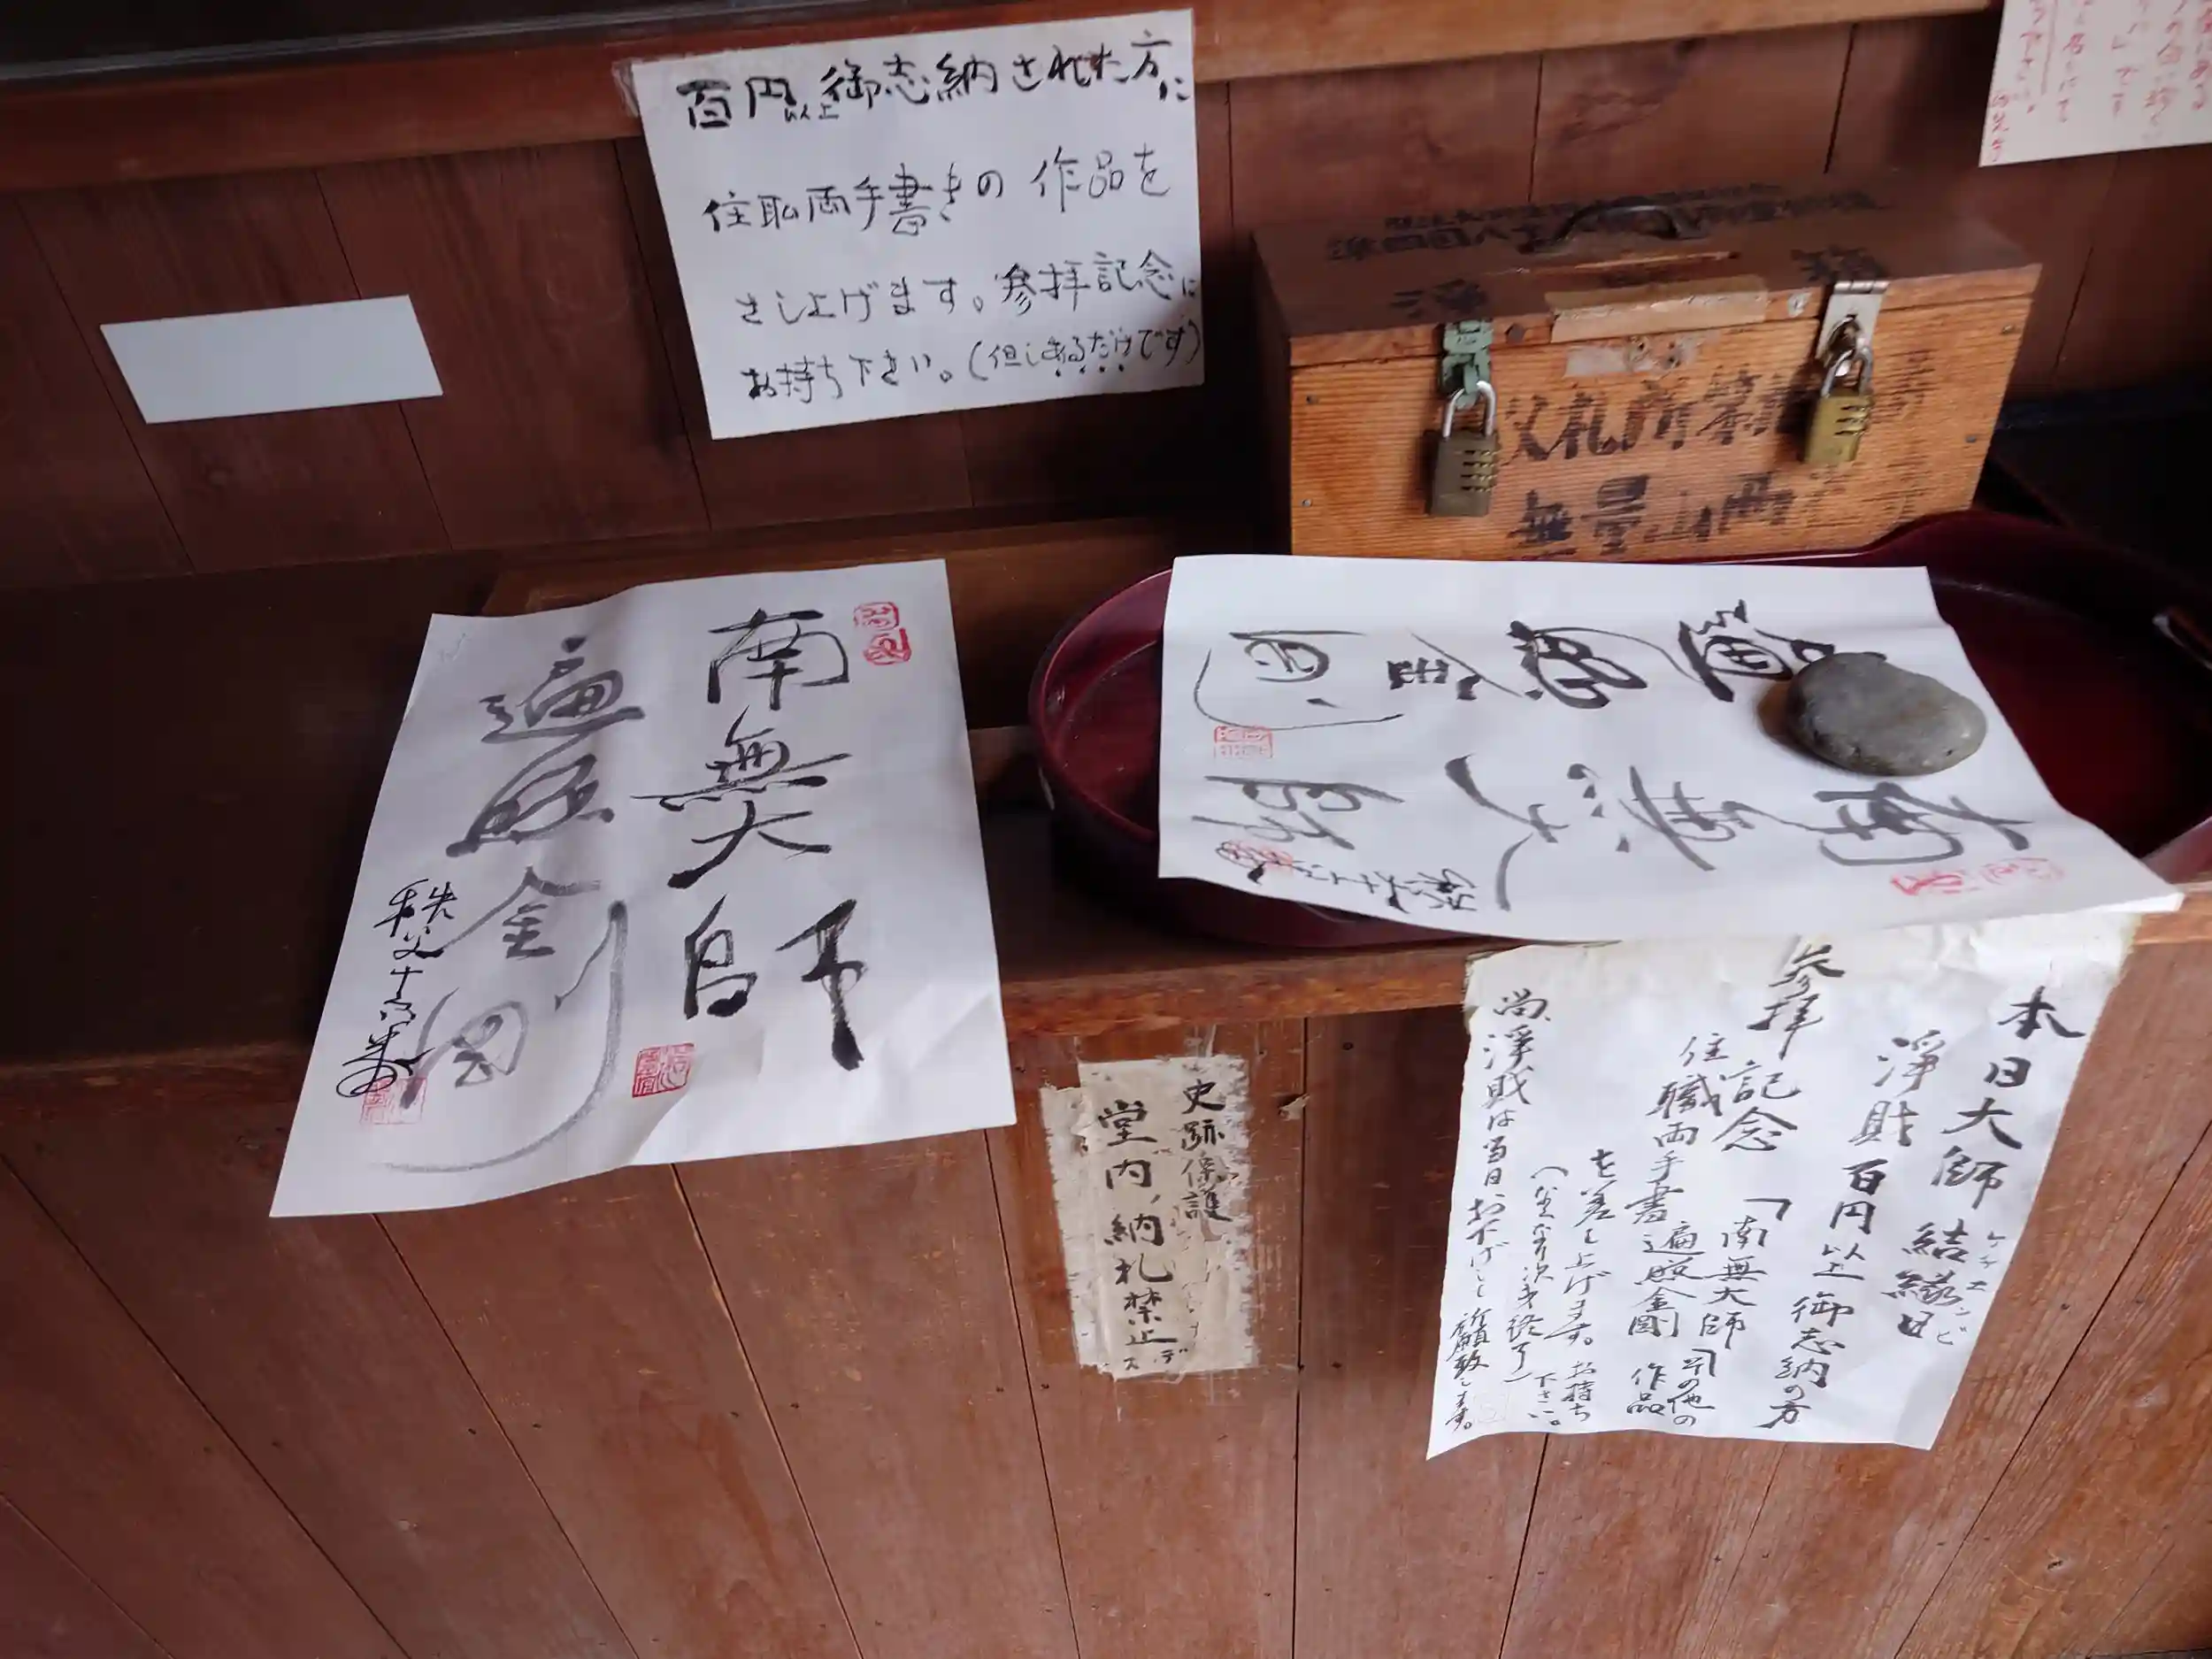 百円以上御志納された方に
住職両手書きの作品を
さし上げます。参拝記念に
お持ち下さい。(但しあるだけです)
父札所第
南無大師
遍照金剛
秩父十六番
南無大師
遍照金剛
史跡保護
堂内、納札禁止
デス
本日大師結縁日
ケチエンビ
淨財百円以上御志納の方
参拝記念「南無大師
遍照金剛」其の他の
住職両手書作品
を差し上げます。お持ち
下さい。
(なくなり次才終了)
尚、淨財は当日お下げし祈願致します。